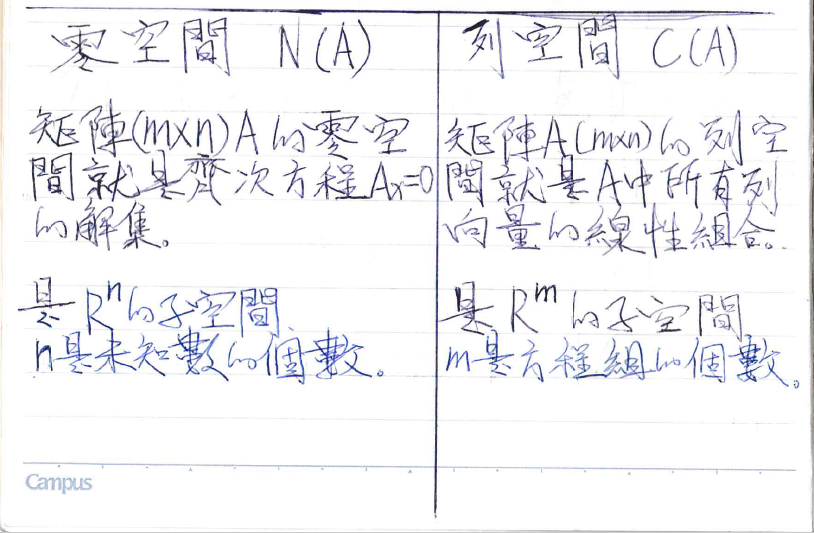 零空間 N(A)
矩陣(m×n)A的零空
間就是齊次方程Ax=0
的解集。
是Rⁿ的子空間
n是未知數的個數。
列空間 C(A)
矩陣A(m×n)的列空
間就是A中所有列
向量的線性組合。
是Rᵐ的子空間
m是方程組的個數。
Campus